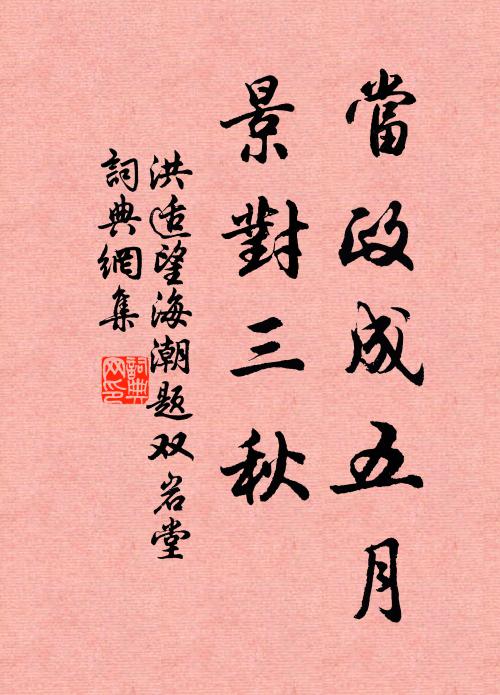 當政成五月
景對三秋
洪适望海潮题双岩堂
詞典網集
詞典网印